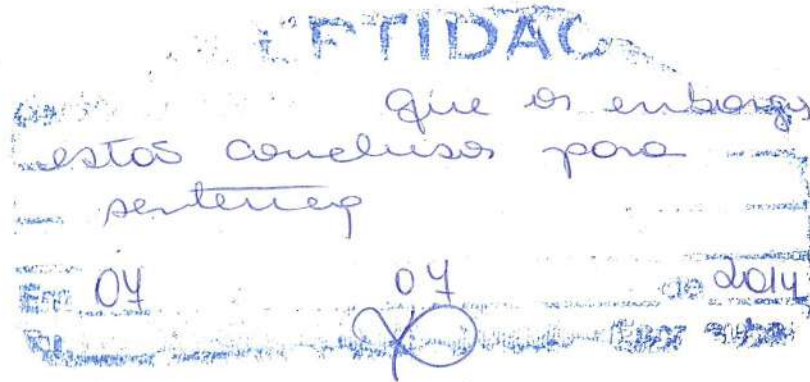 CERTIDÃO
que os embargos
estão conclusos para
sentença
Em 07 07 de 2014